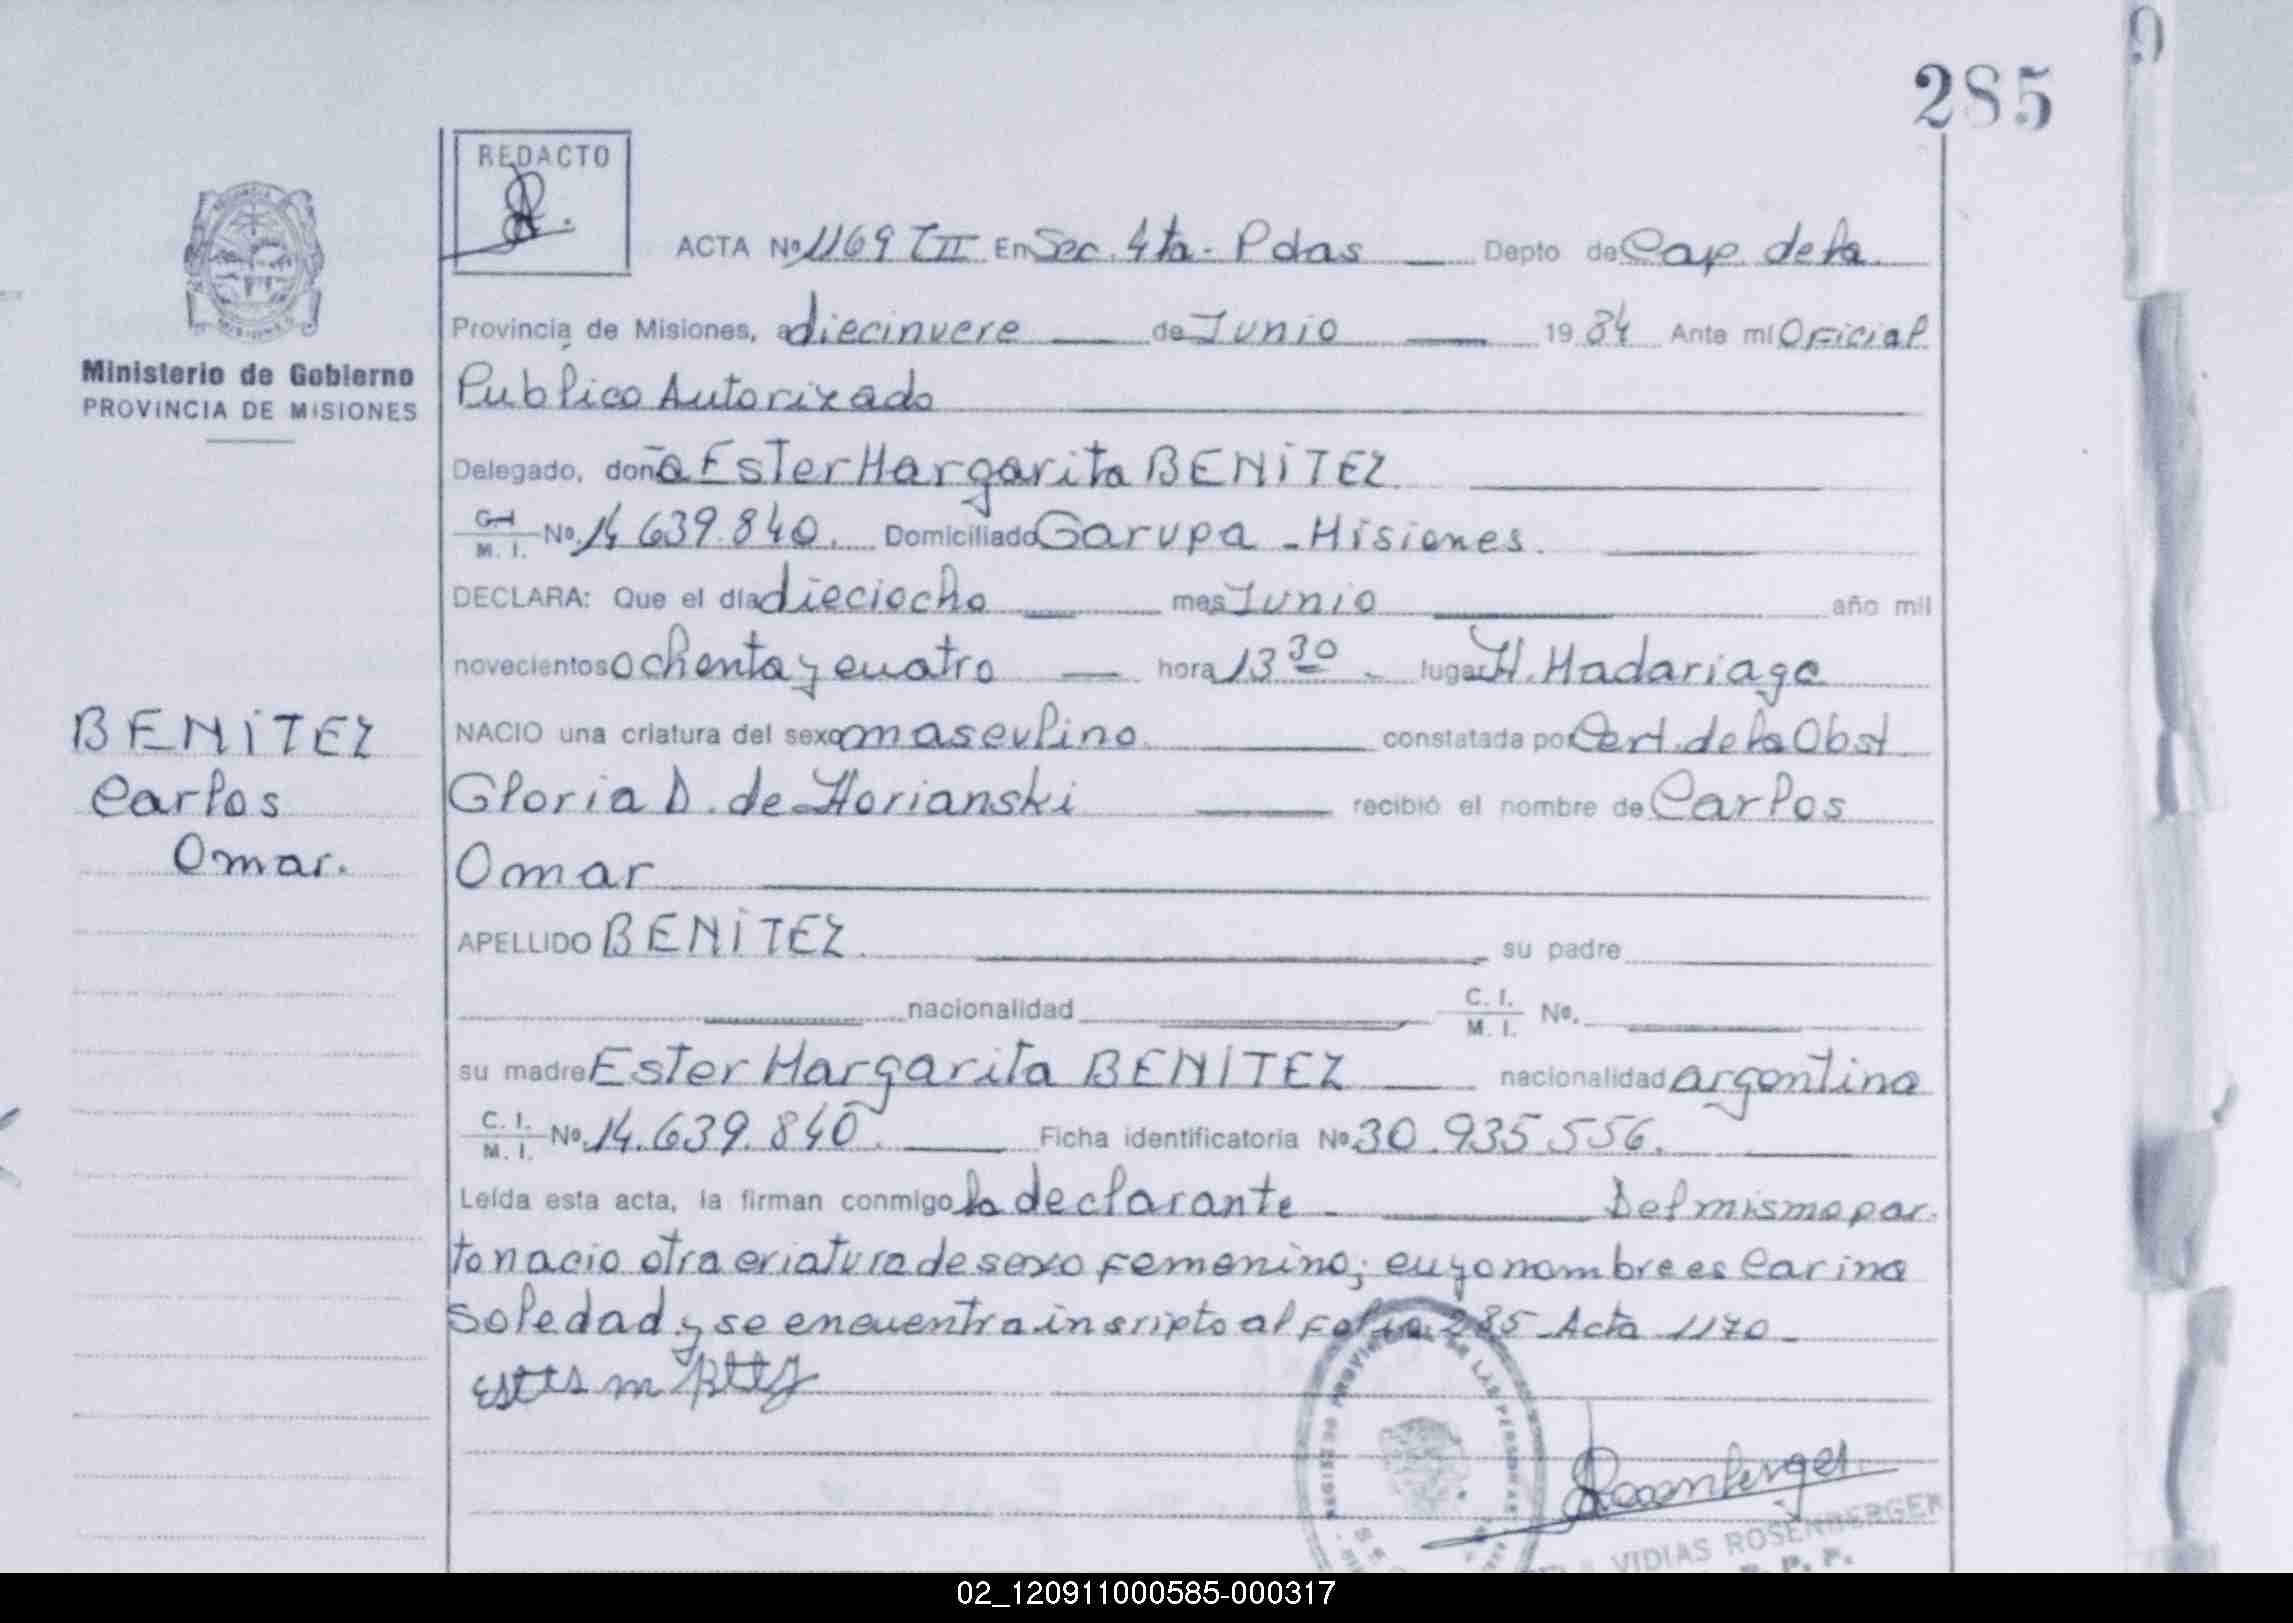 285
REDACTO
ACTA Nº 1169 TII En Sec. 4ta - Pdas Depto de Cap. de la
Provincia de Misiones, a diecinueve de Junio 1984 Ante mí Oficial
Publico Autorizado
Ministerio de Gobierno
PROVINCIA DE MISIONES
Delegado, doña Ester Margarita BENITEZ
C.I. M. I. Nº 14.639.840. Domiciliado Garupa - Misiones.
DECLARA: Que el día dieciocho mes Junio año mil
novecientos ochenta y cuatro hora 13 30 lugar H. Madariaga
NACIO una criatura del sexo masculino constatada por Cert. de la Obst
BENITEZ
Carlos
Omar.
Gloria D. de Horianski recibió el nombre de Carlos
Omar
APELLIDO BENITEZ su padre
nacionalidad C. I. M. I. Nº.
su madre Ester Margarita BENITEZ nacionalidad argentina
C. I. M. I. Nº. 14.639.840. Ficha identificatoria Nº 30.935.556.
Leída esta acta, la firman conmigo la declarante Del mismo par
to nacio otra criatura de sexo femenino; cuyo nombre es Carina
Soledad y se encuentra inscripto al folio 285 Acta 1170
REGISTRO PROVINCIAL DE LAS PERSONAS
Rosenberger
VIDIAS ROSENBERGER
02_120911000585-000317